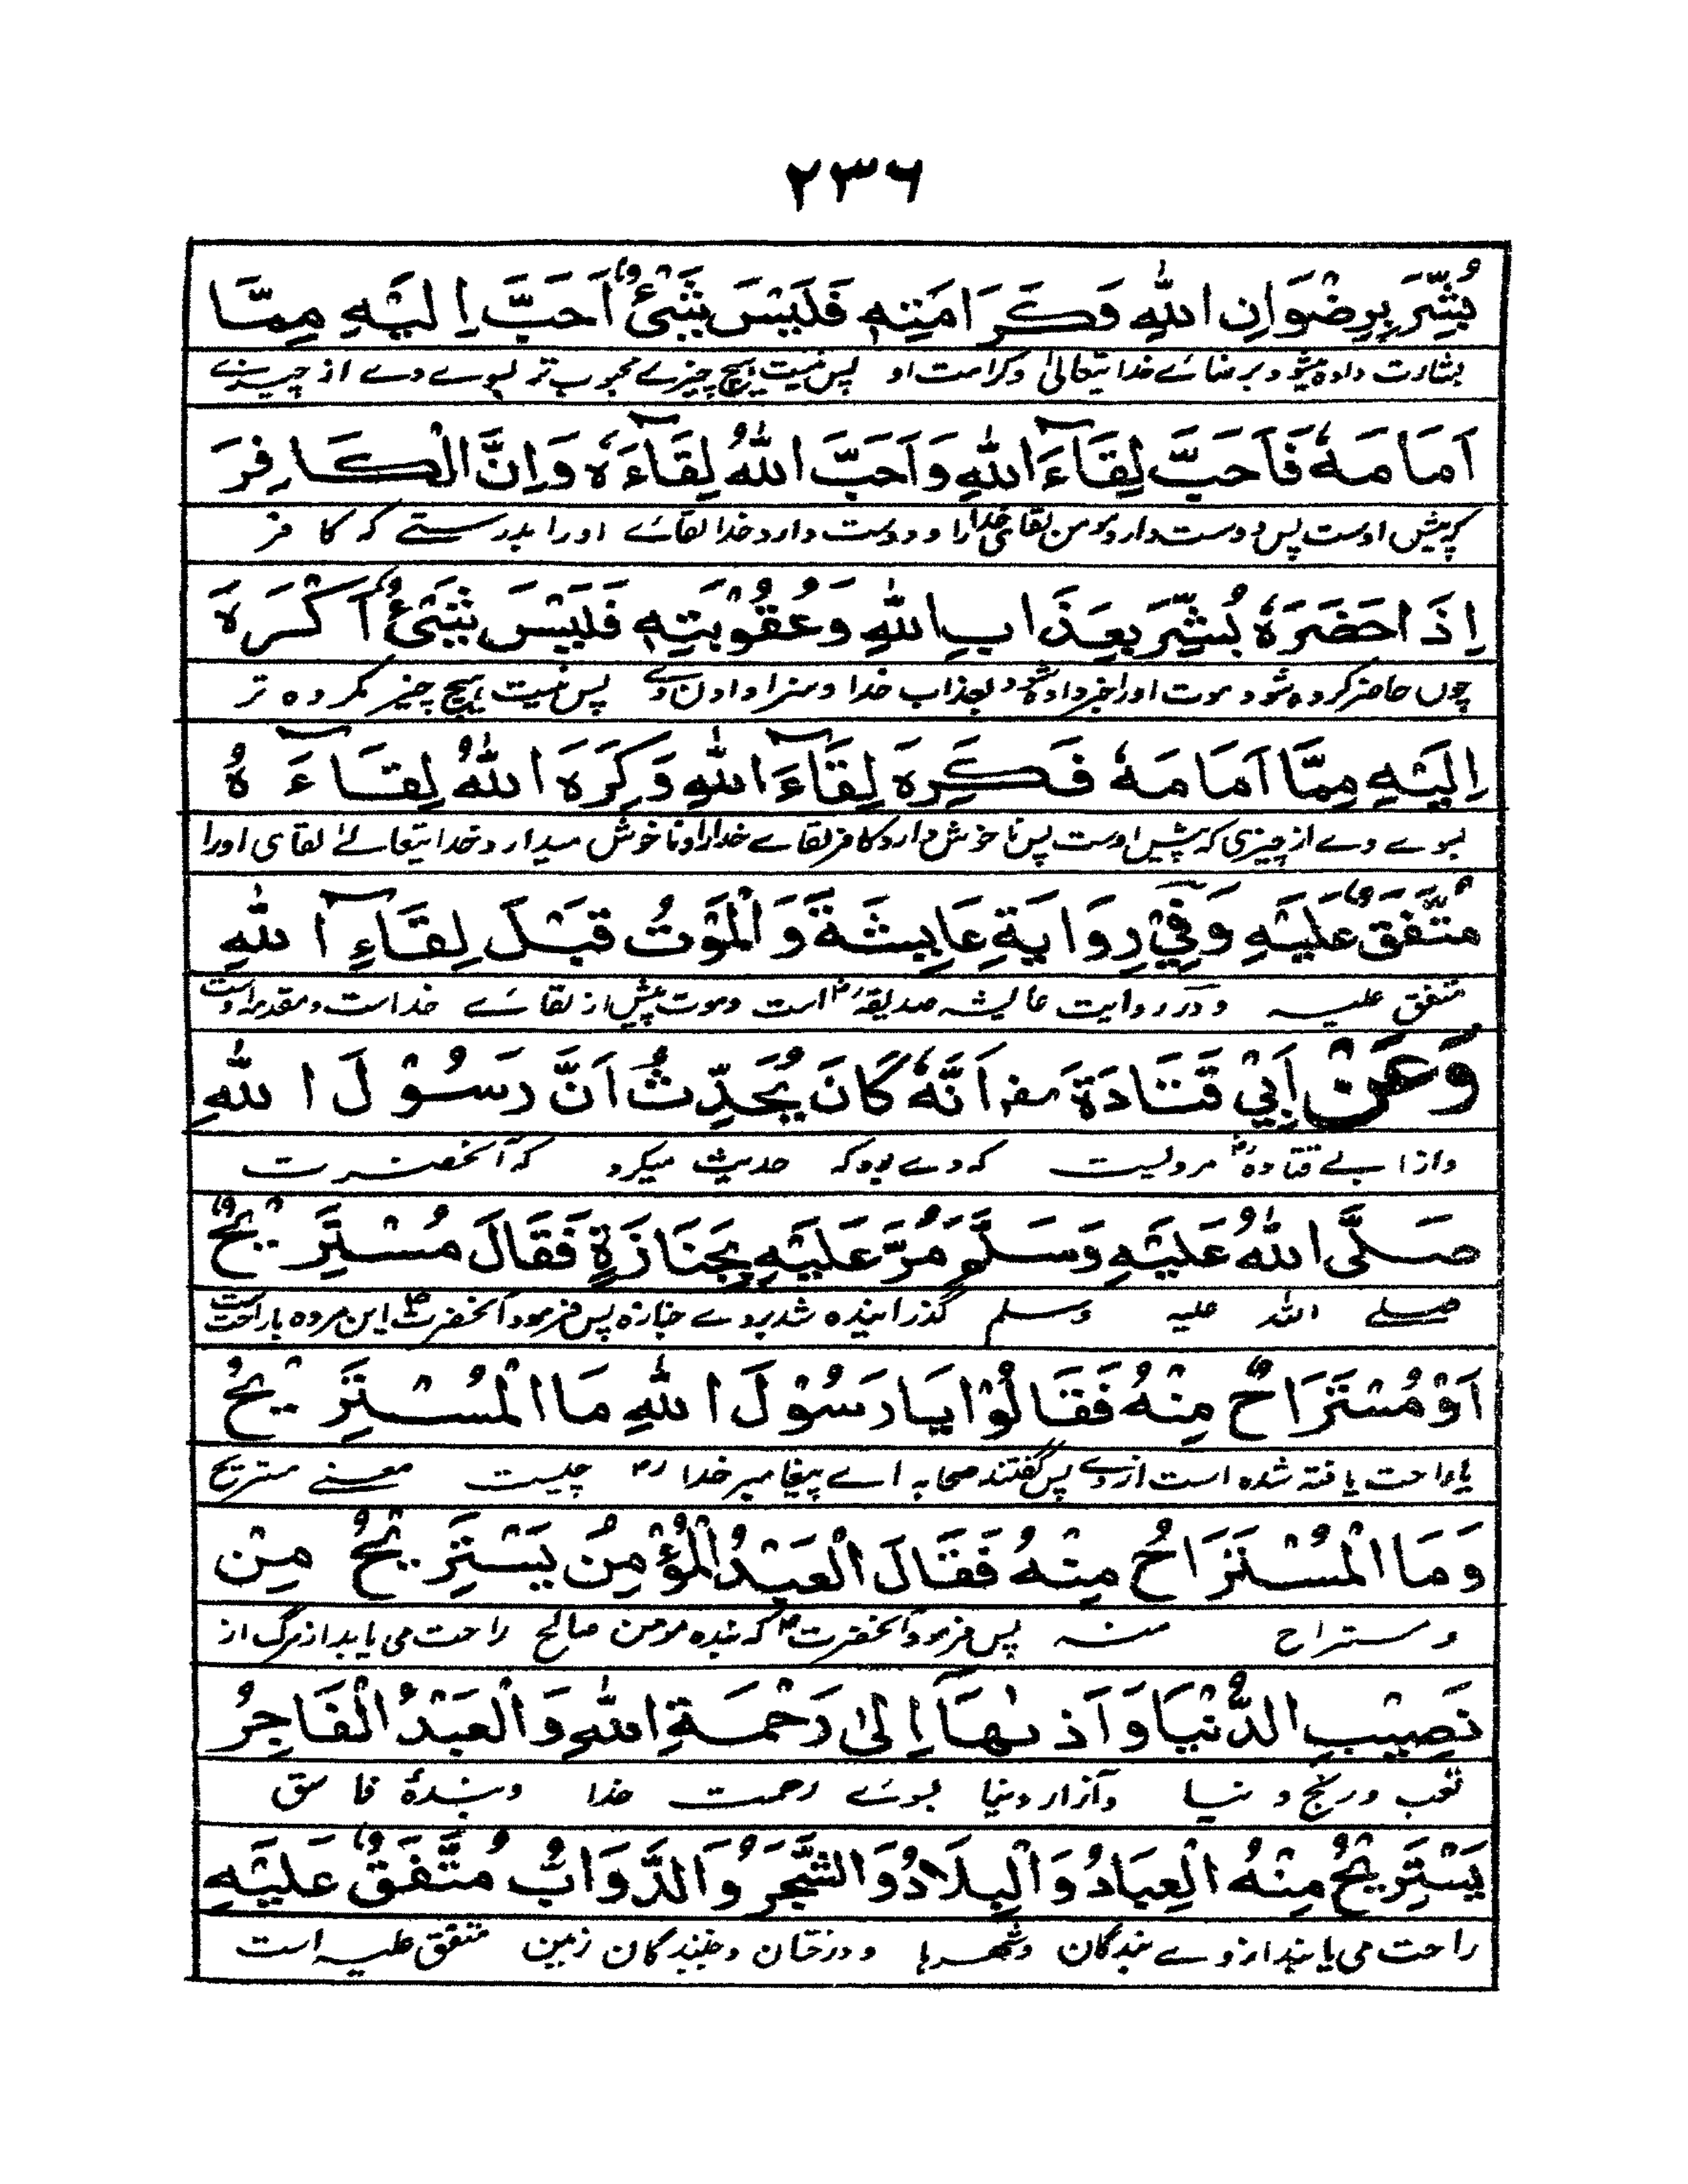 ۲۳۶
بُشِّرَ بِرِضْوَانِ اللّٰهِ وَكَرَامَتِهٖ فَلَيْسَ شَيْءٌ اَحَبَّ اِلَيْهِ مِمَّا
بشارت داده میشود برضائے خدایتعالیٰ وکرامت او پس نیست ہیچ چیزے محبوب تر بسوے وے از چیزے
اَمَامَهٗ فَاَحَبَّ لِقَآءَ اللّٰهِ وَاَحَبَّ اللّٰهُ لِقَآءَهٗ وَاِنَّ الْكَافِرَ
کہ پیش اوست پس دوست دارد مومن لقای خدا را و دوست دارد خدا لقائے اورا بدرستے کہ کا فر
اِذَا حَضَرَهٗ بُشِّرَ بِعَذَابِ اللّٰهِ وَعُقُوْبَتِهٖ فَلَيْسَ شَيْءٌ اَكْرَهَ
چوں حاضر کرده شود موت اورا خبر داده شود بعذاب خدا وسزا دادن وے پس نیست ہیچ چیز مکروه تر
اِلَيْهِ مِمَّا اَمَامَهٗ فَكَرِهَ لِقَآءَ اللّٰهِ وَكَرِهَ اللّٰهُ لِقَآءَهُ
بسوے وے از چیزی کہ پیش اوست پس نا خوش دارد کافر لقاے خدارا و ناخوش میدارد خدایتعالےٰ لقای اورا
مُتَّفَقٌ عَلَيْهِ وَفِيْ رِوَايَةِ عَايِشَةَ وَالْمَوْتُ قَبْلَ لِقَآءِ اللّٰهِ
متفق علیہ ودر روایت عایشہ صدیقہ رض است وموت پیش از لقائے خداست ومقدم اوست
وَعَنْ اَبِيْ قَتَادَةَ رض اَنَّهٗ كَانَ يُحَدِّثُ اَنَّ رَسُوْلَ اللّٰهِ
واز ابے قتاده رض مرویست کہ وے بود کہ حدیث میکرد کہ آنحضرت
صَلَّى اللّٰهُ عَلَيْهِ وَسَلَّمَ مُرَّ عَلَيْهِ بِجَنَازَةٍ فَقَالَ مُسْتَرِيْحٌ
صلے اللہ علیہ وسلم گذرانیده شد بروے جنازه پس فرمود آنحضرت ص این مرده یا راحت است
اَوْ مُسْتَرَاحٌ مِنْهُ فَقَالُوْا يَا رَسُوْلَ اللّٰهِ مَا الْمُسْتَرِيْحُ
یا راحت یافتہ شده است از وے پس گفتند صحابہ اے پیغامبر خدا چیست معنے مستریح
وَمَا الْمُسْتَرَاحُ مِنْهُ فَقَالَ الْعَبْدُ الْمُؤْمِنُ يَسْتَرِيْحُ مِنْ
ومستراح منہ پس فرمود آنحضرت ص کہ بنده مومن صالح راحت می یابد از مرگ از
نَصِيْبِ الدُّنْيَا وَاَذٰىهَا اِلٰى رَحْمَةِ اللّٰهِ وَالْعَبْدُ الْفَاجِرُ
تعب ورنج دنیا وآزار دنیا بسوئے رحمت خدا وبندهٔ فاسق
يَسْتَرِيْحُ مِنْهُ الْعِبَادُ وَالْبِلَادُ وَالشَّجَرُ وَالدَّوَابُّ مُتَّفَقٌ عَلَيْهِ
راحت می یابند از وے بندگان وشہرہا ودرختان وجنبندگان زمین متفق علیہ است